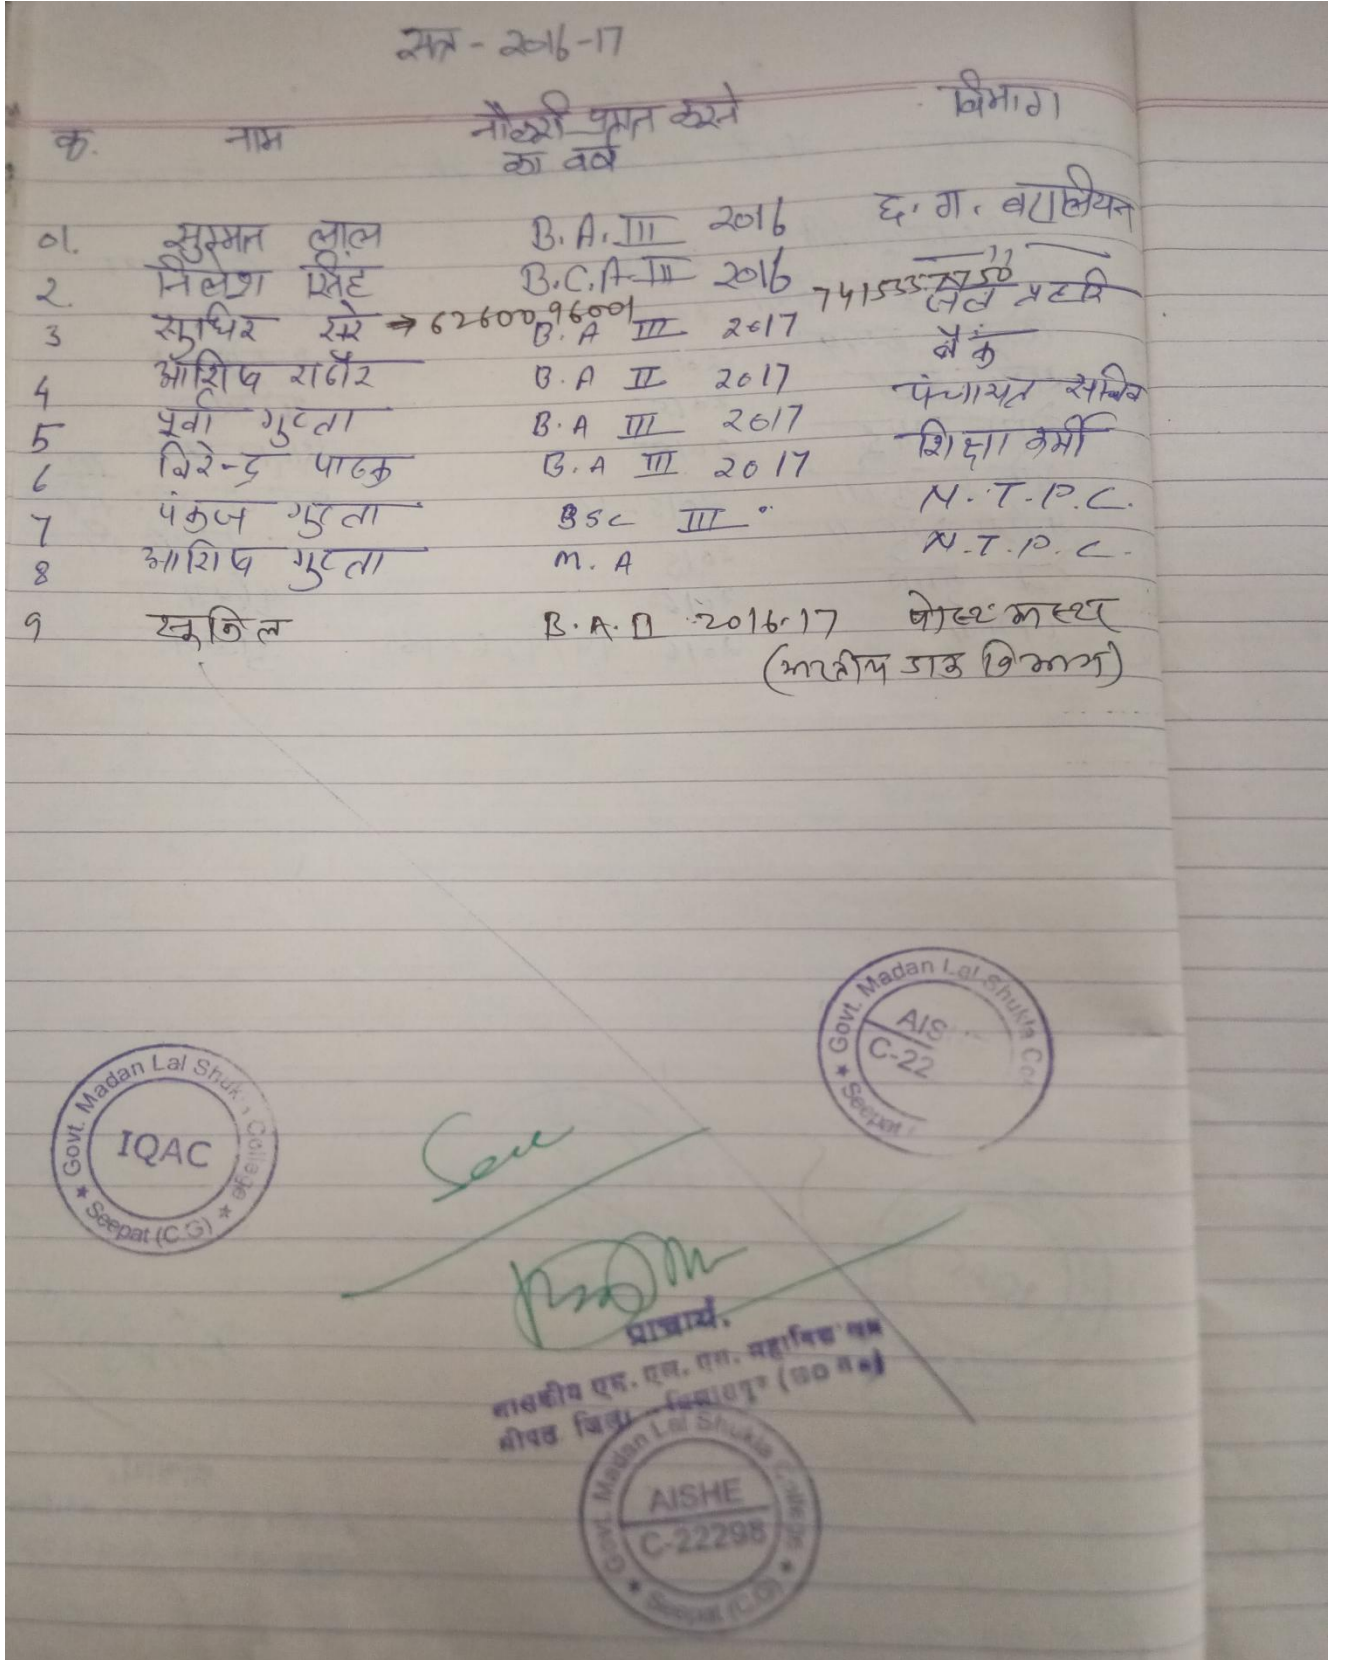 सत्र - 2016-17
क. नाम नौकरी प्राप्त करने का वर्ष विभाग
01. सुम्मत लाल B.A. III 2016 छ. ग. बटालियन
2. निलेश सिंह B.C.A-III 2016 —"—
3 सुधिर खरे → 6260096001 B.A III 2017 जेल प्रहरि
4 आशिष राठौर B.A II 2017 बैंक
5 पूर्वा गुप्ता B.A III 2017 पंचायत सचिव
6 विरेन्द्र पाठक B.A III 2017 शिक्षा कर्मी
7 पंकज गुप्ता BSC III " N.T.P.C.
8 आशिष गुप्ता M.A N.T.P.C.
9 सुनिल B.A. II 2016-17 पोस्ट मास्टर
(भारतीय डाक विभाग)
Govt. Madan Lal Shukla College
IQAC
Seepat (C.G)
Govt. Madan Lal Shukla Co
AIS
C-22
Seepat
प्राचार्य.
शासकीय एम. एल. एस. महाविद्यालय
सीपत जिला - बिलासपुर (छ०ग०)
Govt. Madan Lal Shukla College
AISHE
C-22298
Seepat (C.G)